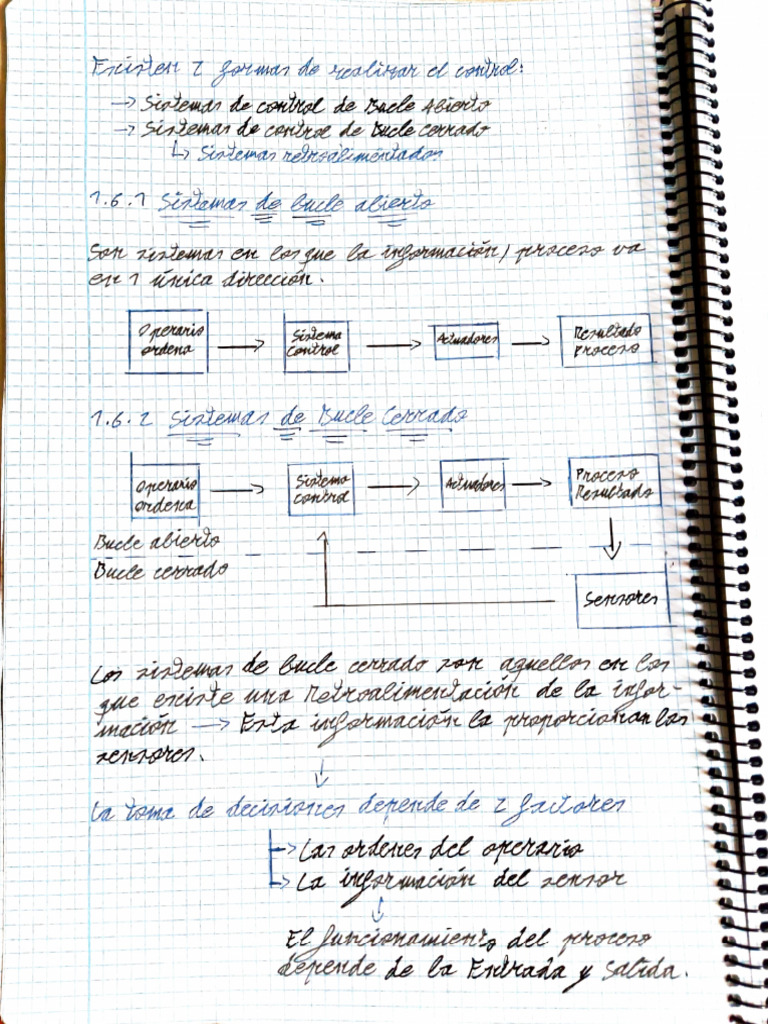 Existen 2 formas de realizar el control:
→ Sistemas de control de Bucle Abierto
→ Sistemas de control de Bucle cerrado
↳ Sistemas retroalimentados
1.6.1 Sistemas de bucle abierto
Son sistemas en los que la información/proceso va
en 1 única dirección.
Operario ordena → Sistema control → Actuadores → Resultado Proceso
1.6.2 Sistemas de Bucle Cerrado
Operario ordena → Sistema control → Actuadores → Proceso Resultado
Bucle abierto
Bucle cerrado
Sensores
Los sistemas de bucle cerrado son aquellos en los
que existe una Retroalimentación de la infor-
mación → Esta información la proporcionan los
sensores.
↓
La toma de decisiones depende de 2 factores
→ Las ordenes del operario
→ La información del sensor
↓
El funcionamiento del proceso
depende de la Entrada y Salida.